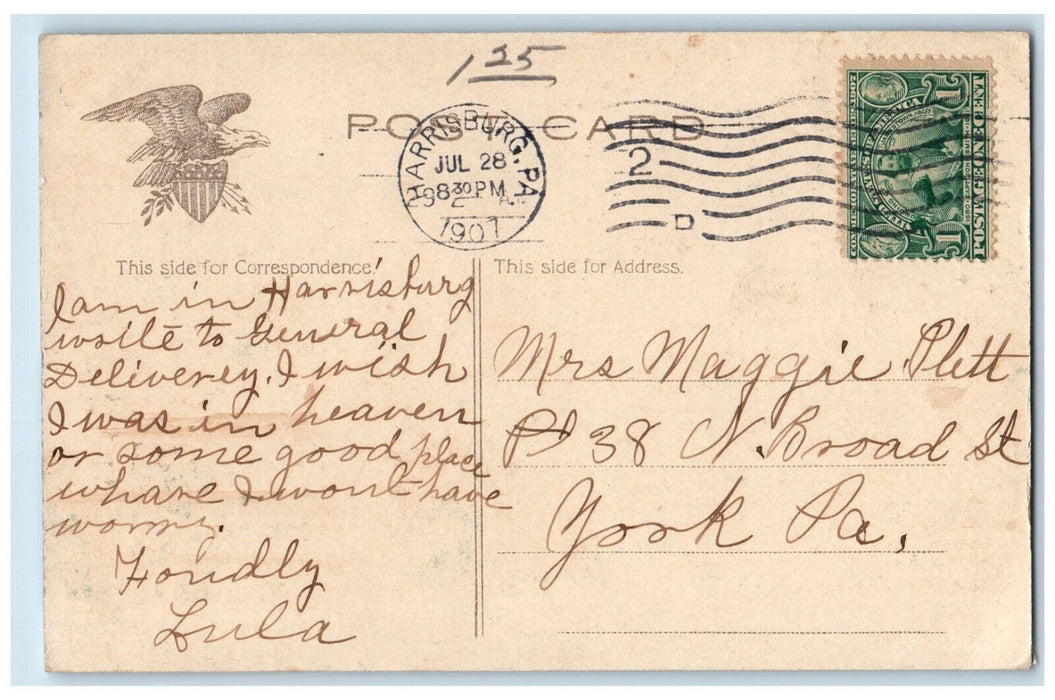 1 25
POST CARD
HARRISBURG, PA
JUL 28
8 30 PM
1907
2
D
POSTAGE ONE CENT
1 1
This side for Correspondence.
This side for Address.
I am in Harrisburg
write to General
Deliverey. I wish
I was in heaven
or some good place
whare I wont have
worry.
Fondly
Lula
Mrs Maggie Plett
38 N. Broad St
York Pa.